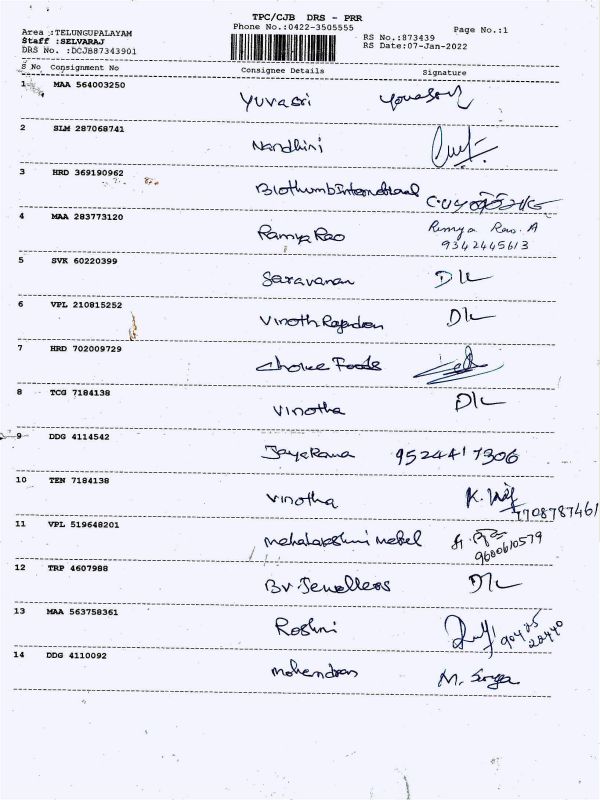 TPC/CJB DRS - PRR
Phone No.:0422-3505555
Area :TELUNGUPALAYAM
Staff :SELVARAJ
DRS No. :DCJB87343901
Page No.:1
RS No.:873439
RS Date:07-Jan-2022
S No Consignment No Consignee Details Signature
1 MAA 564003250 Yuvasri
2 SLM 287068741 Nandhini
3 HRD 369190962 Biothumb International
4 MAA 283773120 Ramya Rao Remya Rao. A
9342445613
5 SVK 60220399 Saravanan D/L
6 VPL 210815252 Vinoth Rajendran D/L
7 HRD 702009729 Choice Foods
8 TCG 7184138 Vinotha D/L
9 DDG 4114542 JayaRama 9524417306
10 TEN 7184138 Vinotha
7708787461
11 VPL 519648201 Mahalakshmi Metel
9600610579
12 TRP 4607988 BV Jewellers D/L
13 MAA 563758361 Roshni 90425
20440
14 DDG 4110092 Mohendran M. Surya